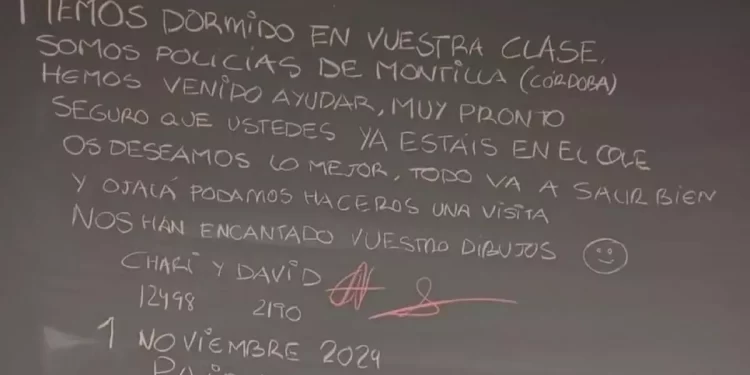 HEMOS DORMIDO EN VUESTRA CLASE.
SOMOS POLICÍAS DE MONTILLA (CÓRDOBA)
HEMOS VENIDO AYUDAR, MUY PRONTO
SEGURO QUE USTEDES YA ESTÁIS EN EL COLE
OS DESEAMOS LO MEJOR, TODO VA A SALIR BIEN
Y OJALÁ PODAMOS HACEROS UNA VISITA
NOS HAN ENCANTADO VUESTRO DIBUJOS
CHARI Y DAVID
12498 2190
1 NOVIEMBRE 2024